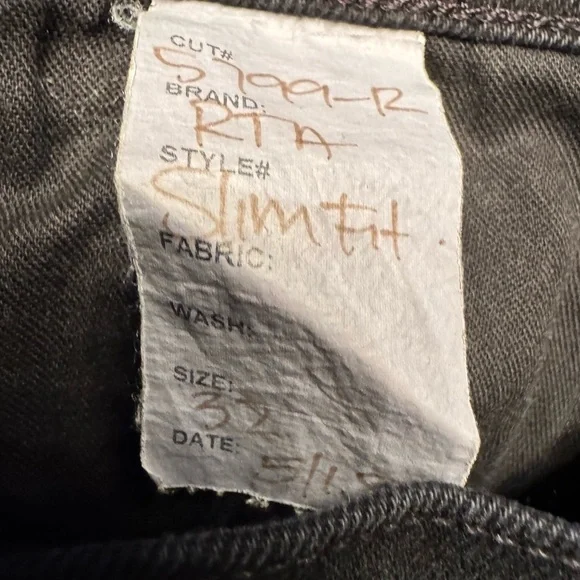 CUT#
5799-R
BRAND:
RTA
STYLE#
Slim Fit.
FABRIC:
WASH:
SIZE:
DATE: